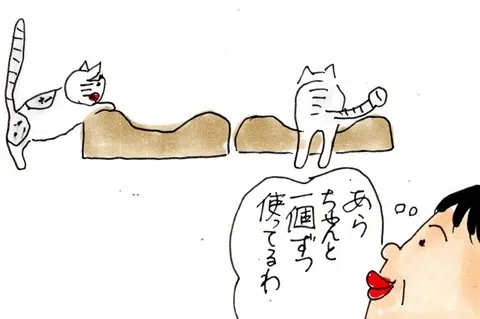 あら
ちゃんと
一個ずつ
使ってるわ